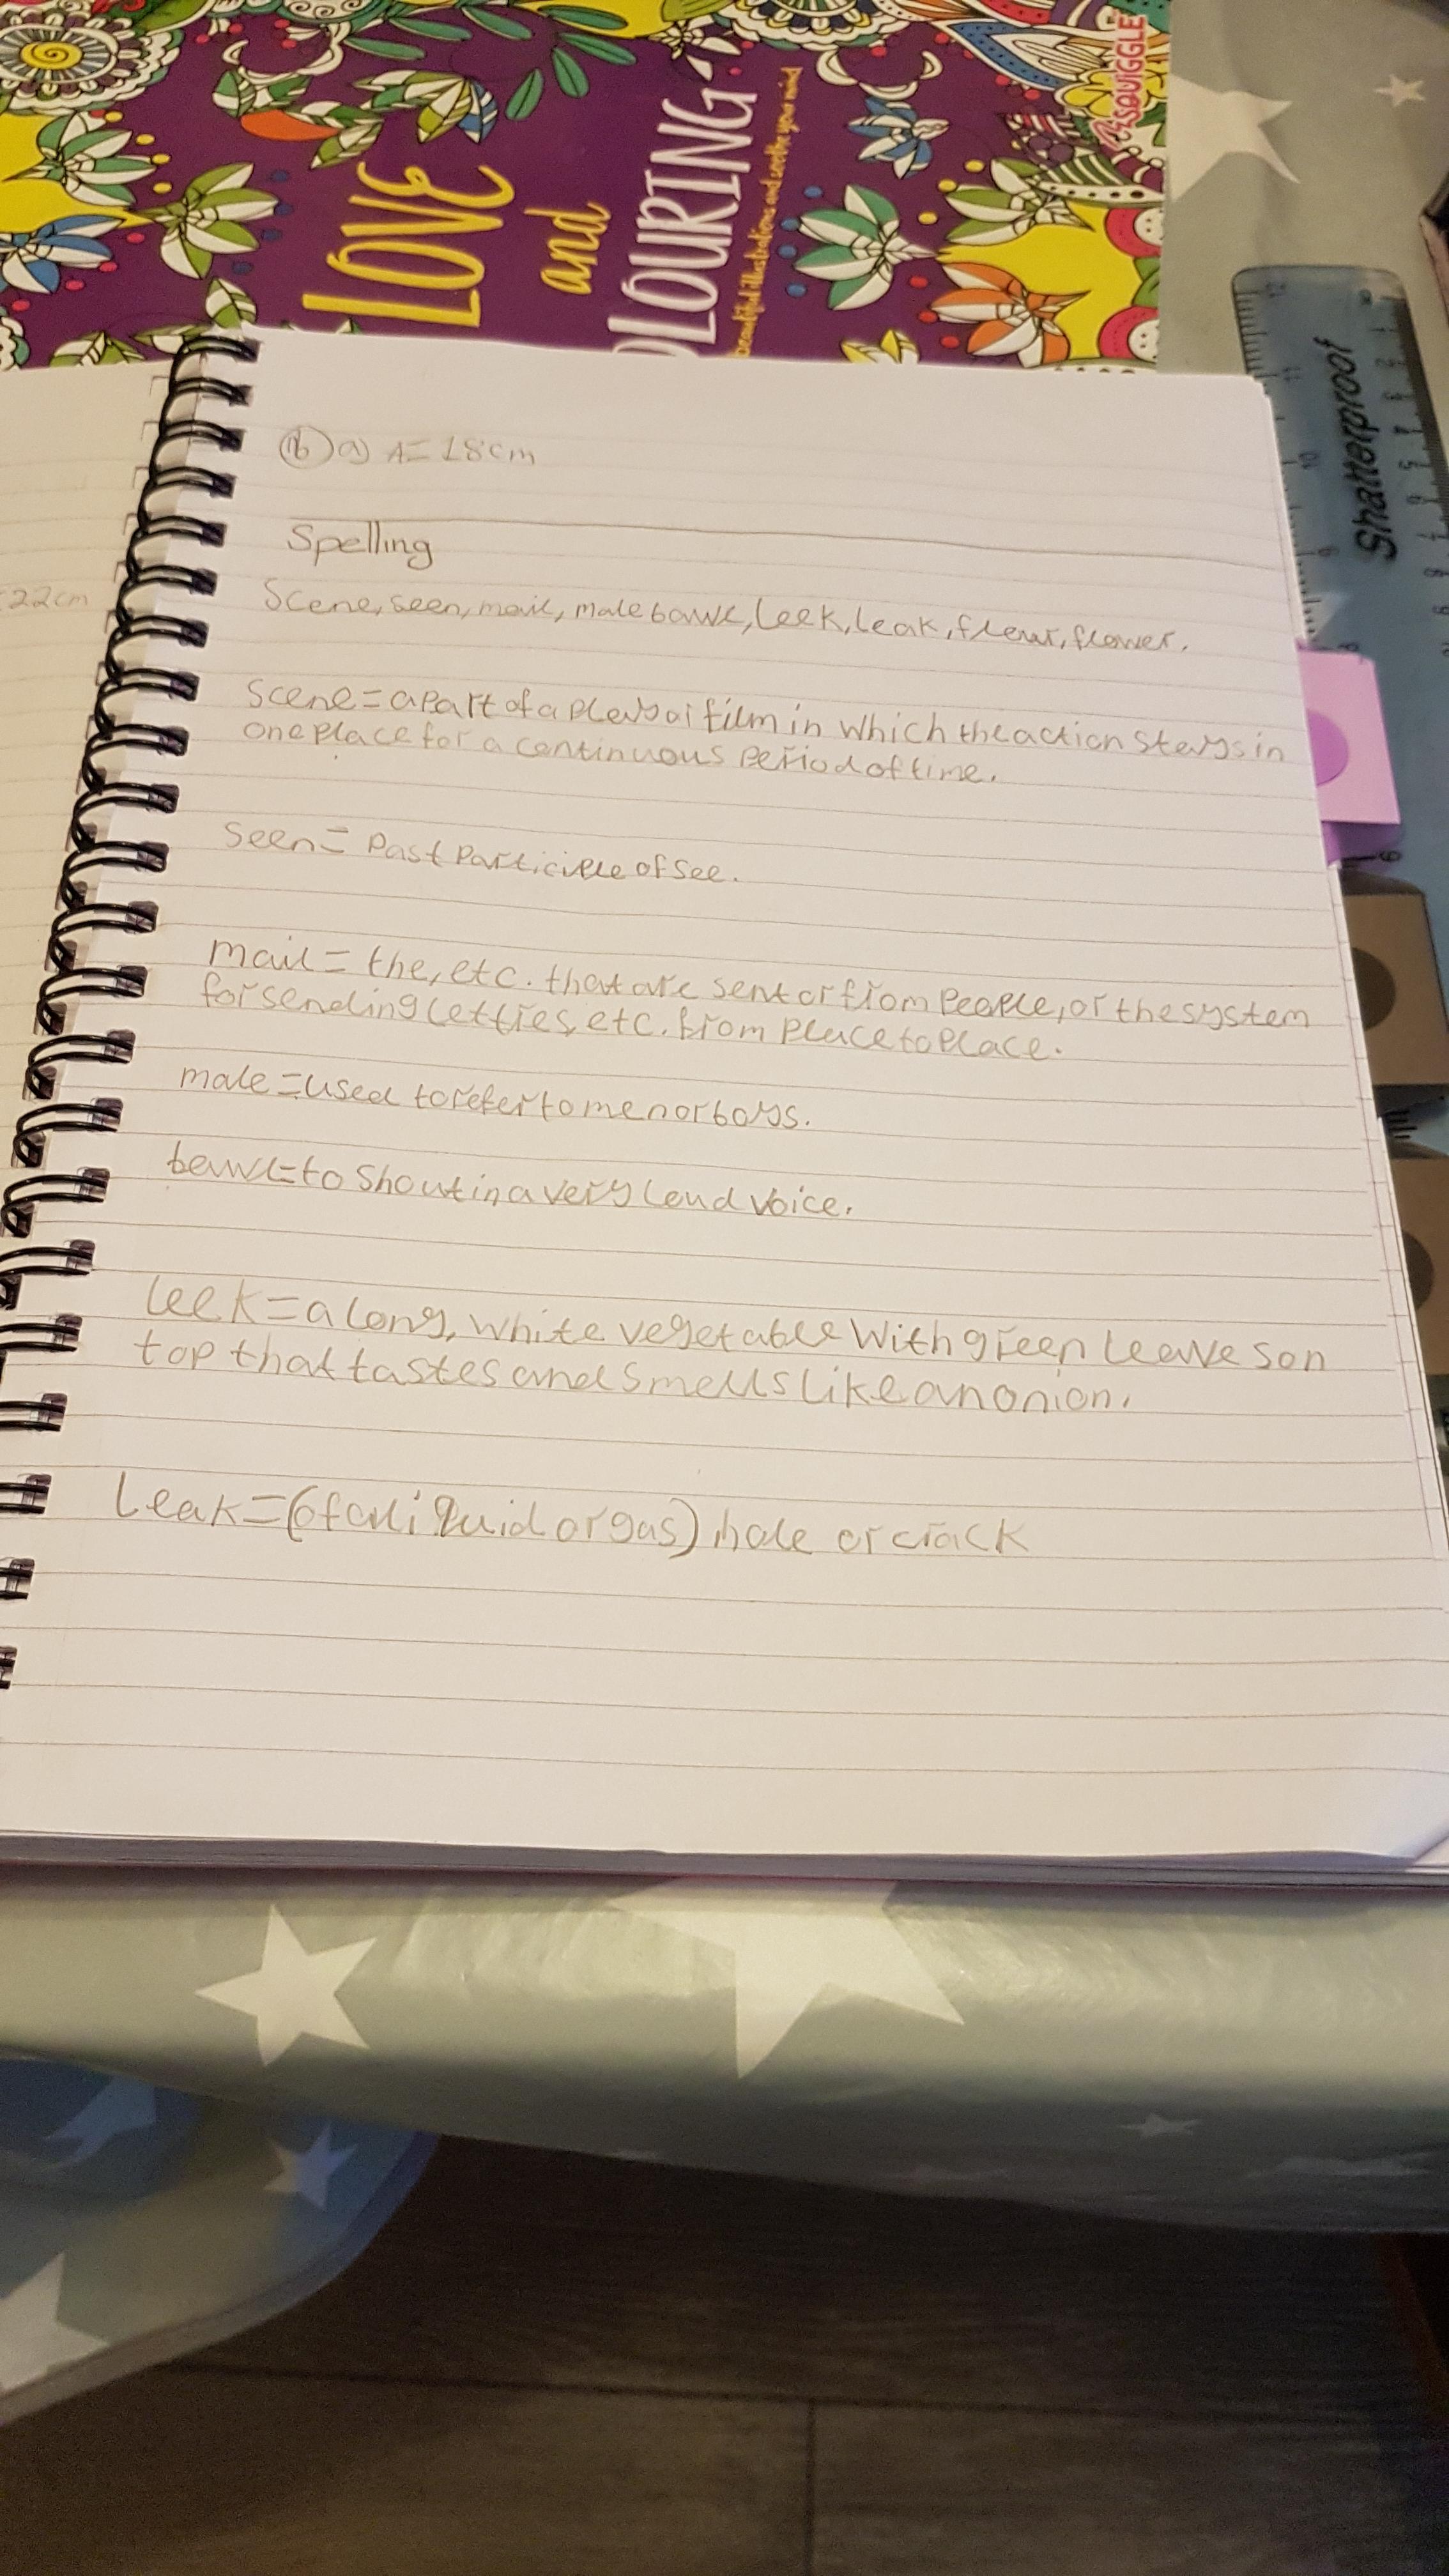 LOVE
and
OLOURING
beautiful illustrations and soothe your mind
SQUIGGLE
Shatterproof
22cm
16 a) A=18cm
Spelling
Scene, seen, mail, male bawl, leek, leak, flour, flower.
Scene=a part of a play or film in which the action stays in
one place for a continuous period of time.
Seen= Past Participle of see.
mail= the, etc. that are sent or from People, or the system
for sending letters, etc. from place to place.
male=used to refer to men or boys.
bawl=to shout in a very loud voice.
leek=a long, white vegetable with green leaves on
top that tastes and smells like an onion.
Leak=(of a liquid or gas) hole or crack